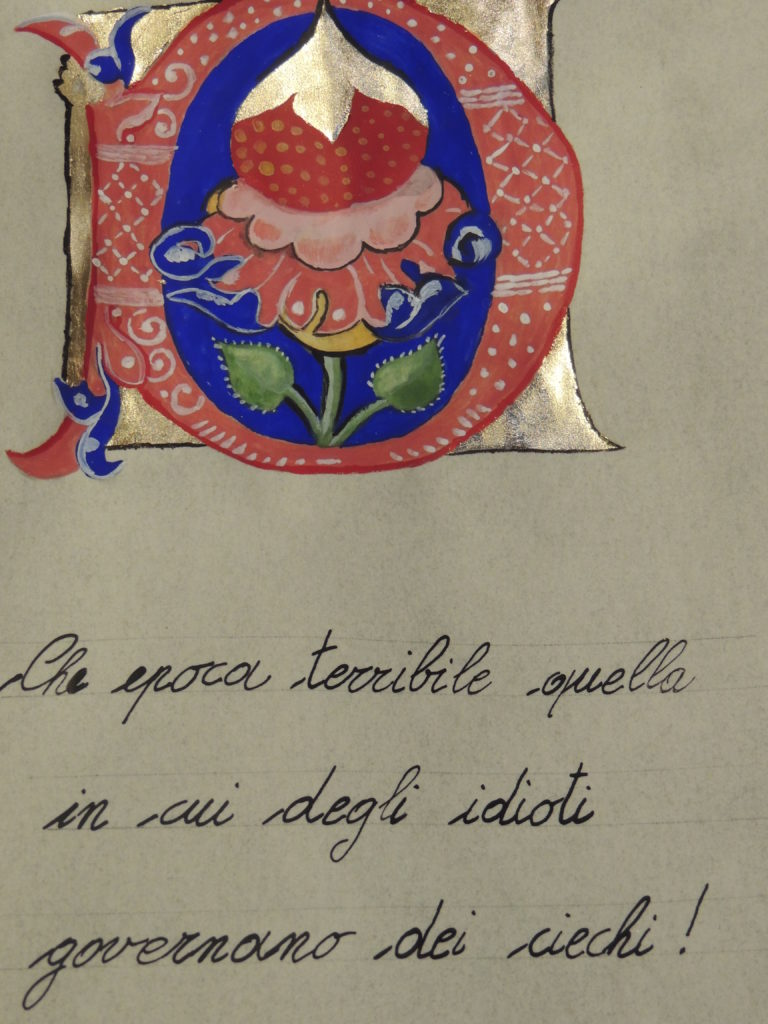 Che epoca terribile quella
in cui degli idioti
governano dei ciechi!